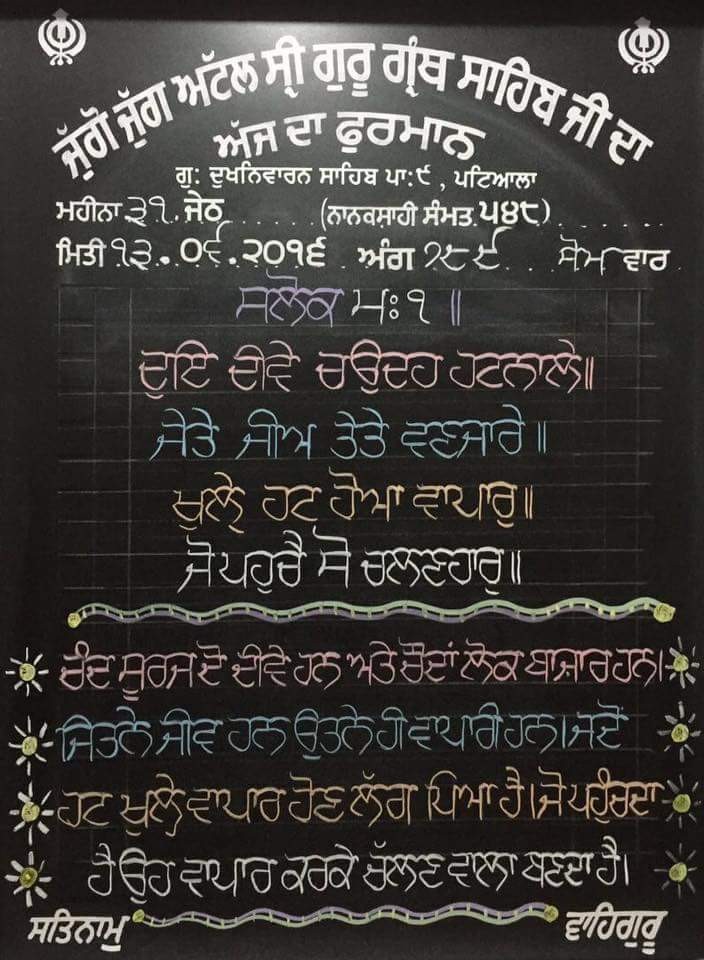 ਜੁੱਗੋ ਜੁੱਗ ਅਟੱਲ ਸ੍ਰੀ ਗੁਰੂ ਗ੍ਰੰਥ ਸਾਹਿਬ ਜੀ ਦਾ
ਅੱਜ ਦਾ ਫੁਰਮਾਨ
ਗੁ: ਦੁਖਨਿਵਾਰਨ ਸਾਹਿਬ ਪਾ:੯ , ਪਟਿਆਲਾ
ਮਹੀਨਾ ੩੧ ਜੇਠ (ਨਾਨਕਸ਼ਾਹੀ ਸੰਮਤ ੫੪੮)
ਮਿਤੀ ੧੩.੦੬.੨੦੧੬ ਅੰਗ ੭੮੯ ਸੋਮ ਵਾਰ
ਸਲੋਕ ਮਃ ੧ ॥
ਦੁਇ ਦੀਵੇ ਚਉਦਹ ਹਟਨਾਲੇ॥
ਜੇਤੇ ਜੀਅ ਤੇਤੇ ਵਣਜਾਰੇ॥
ਖੁਲ੍ਹੇ ਹਟ ਹੋਆ ਵਾਪਾਰੁ॥
ਜੋ ਪਹੁਚੈ ਸੋ ਚਲਣਹਾਰੁ॥
ਚੰਦ ਸੂਰਜ ਦੋ ਦੀਵੇ ਹਨ ਅਤੇ ਚੌਦਾਂ ਲੋਕ ਬਾਜ਼ਾਰ ਹਨ।
ਜਿਤਨੇ ਜੀਵ ਹਨ ਉਤਨੇ ਹੀ ਵਪਾਰੀ ਹਨ। ਜਦੋਂ
ਹਟ ਖੁਲ੍ਹੇ ਵਾਪਾਰ ਹੋਣ ਲੱਗ ਪਿਆ ਹੈ। ਜੋ ਪਹੁੰਚਦਾ
ਹੈ ਉਹ ਵਾਪਾਰ ਕਰਕੇ ਚੱਲਣ ਵਾਲਾ ਬਣਦਾ ਹੈ।
ਸਤਿਨਾਮੁ ਵਾਹਿਗੁਰੂ